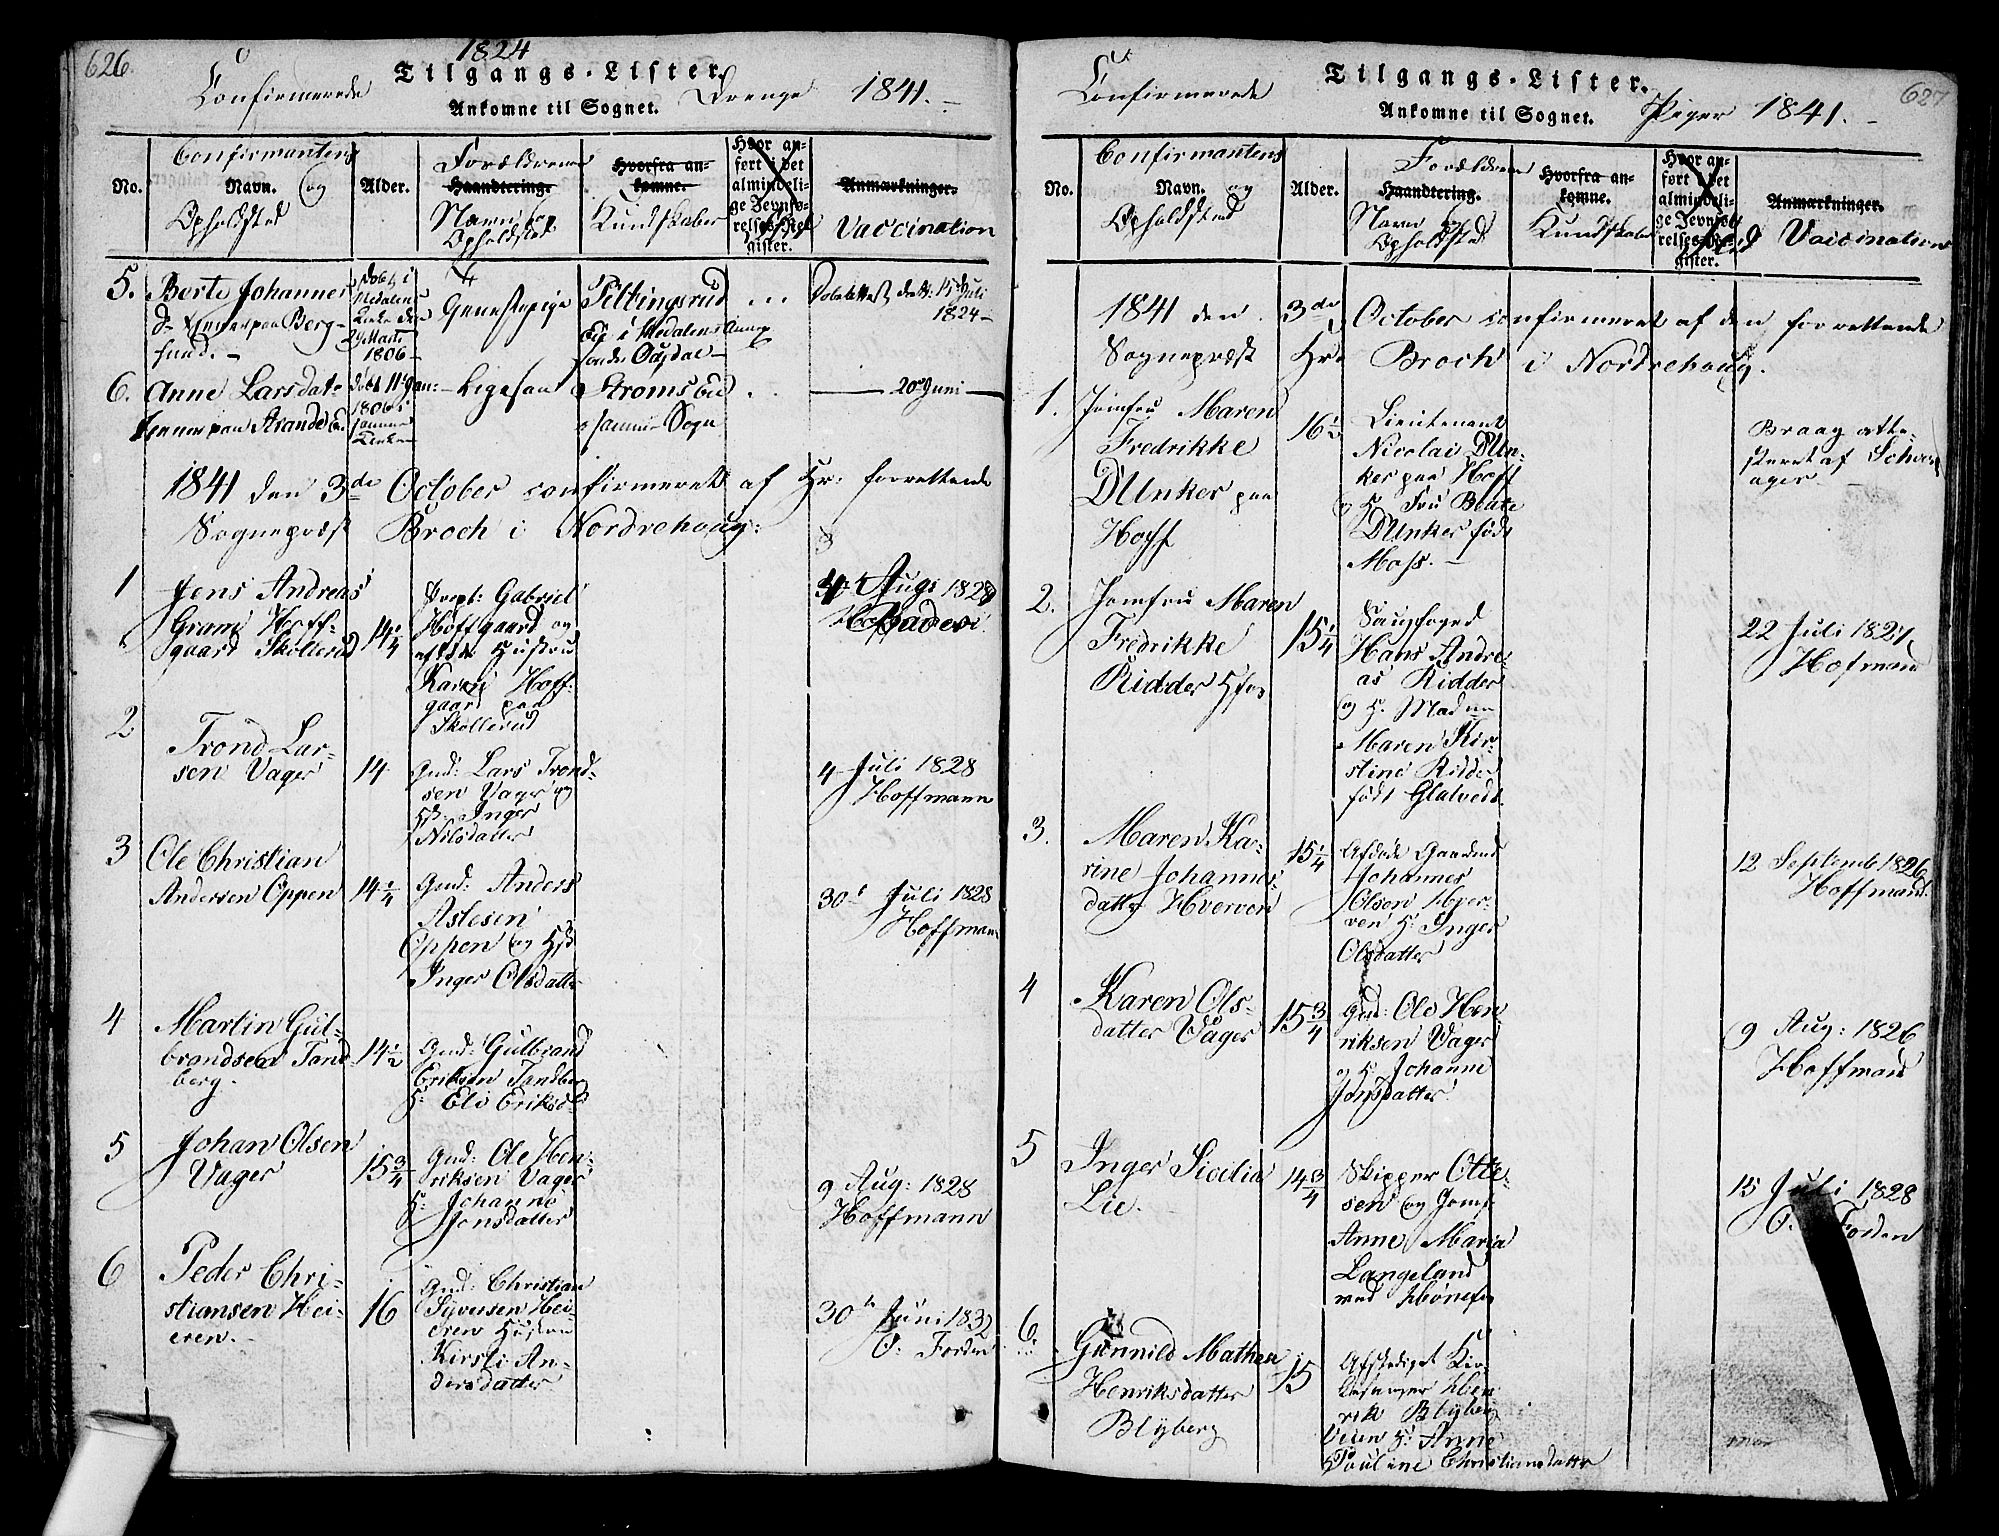 626.
1824
Tilgangs-Lister.
Confirmerede Drenge 1841.
Ankomne til Sognet.
Confirmantens
No. Navn. og Alder.
Opholdsted
Forældrenes
Haandtering.
Navn og
Opholdsted
Hvorfra an-
komne.
Kundskaber
Hvor an-
ført i det
almindeli-
ge Jevnfø-
relses-Re-
gister.
Anmærkninger.
Vaccination
5. Berte Johannes
d. tjener paa Berg-
sund.
1806
Tjenestepige
15de Juli
1824
6. Anne Larsdat-
tjener paa Strande
1806
Ligesaa
Stromsøe
Sogn
20 Juni
1841 den 3de October confirmeret af Hr: forrettende
Sogneprest Broch i Nordrehoug:
1
Jens Andreas
Gram Hoff-
gaard Skollerud
14 1/4
Gabriel
Hoffgaard og
Hustru
Karen Hoff-
gaard paa
Skollerud
Aug: 1828
2
Trond Lar-
sen Vager
14
Gmd: Lars Trond-
sen Vager og
H: Inger
Nilsdatter
4 Juli 1828
Hoffmann
3
Ole Christian
Andersen Oppen
14 1/4
Gmd: Anders
Aslesen
Oppen og H:
Inger Olsdatter
30 Juli 1828
Hoffmann
4
Martin Gul-
brandsen Tand
berg.
14 1/2
Gmd: Gulbrand
Eriksen Tandberg
H: Eli Eriksd
5
Johan Olsen
Vager
15 3/4
Gmd: Ole Hen-
riksen Vager
H: Johanne
Jonsdatter
9 Aug: 1828
Hoffmann
6
Peder Chri-
stiansen Hei-
eren.
16
Gmd: Christian
Syversen Hei-
eren Hustru
Kirsti An-
dersdatter
30te Juni 1832
O: Forden
627
Tilgangs-Lister.
Confirmerede Piger 1841.
Ankomne til Sognet.
Confirmantens
No. Navn. og Alder.
Opholdsted
Forældrenes
Haandtering.
Navn og
Opholdsted
Hvorfra an-
komne.
Kundskaber
Hvor an-
ført i det
almindeli-
ge Jevnfø-
relses-Re-
gister.
Anmærkninger.
Vaccination
1841 den 3de October confirmeret af den forrettende
Sogneprest Hr: Broch i Nordrehoug.
1.
Jomfru Maren
Fredrikke
Dunker paa
Hoff
16 1/2
Lieutenant
Nicolai Dun-
ker paa Hoff
og H. Fru Beate
Dunker født
Moss.
Braag atte-
steret af
2.
Jomfru Maren
Fredrikke
Ridder
15 1/4
Saugfoged
Hans Andre-
as Ridder
og H. Madame
Maren Kir-
stine Ridder
født Glatvedt
22 Juli 1827
Hofmand
3.
Maren Ka-
rine Johannes-
datter Hverven
15 1/4
Afdøde Gaardmd
Johannes
Olsen Hver-
ven H: Inger
Olsdatter
12 Septemb 1826
Hoffmand
4
Karen Ols-
datter Vager
15 3/4
Gmd: Ole Hen
riksen Vager
og H. Johanne
Jonsdatter
9 Aug: 1826
Hoffmand
5
Inger Sicilia
Lie.
14 3/4
Skipper Otte-
sen og Jomf.
Anne Maria
Langeland
ved Hønefos
15 Juli 1828
O. Forden
6.
Gunnild Mathea
Henriksdatter
Blyberg
15
Afskediget Kir-
kesanger Hen
rik Blyberg
Veien H: Anne
Pauline Christiansdatter